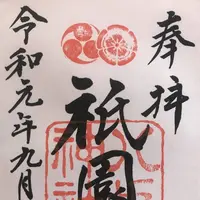 奉拝
祇園
令和元年九月